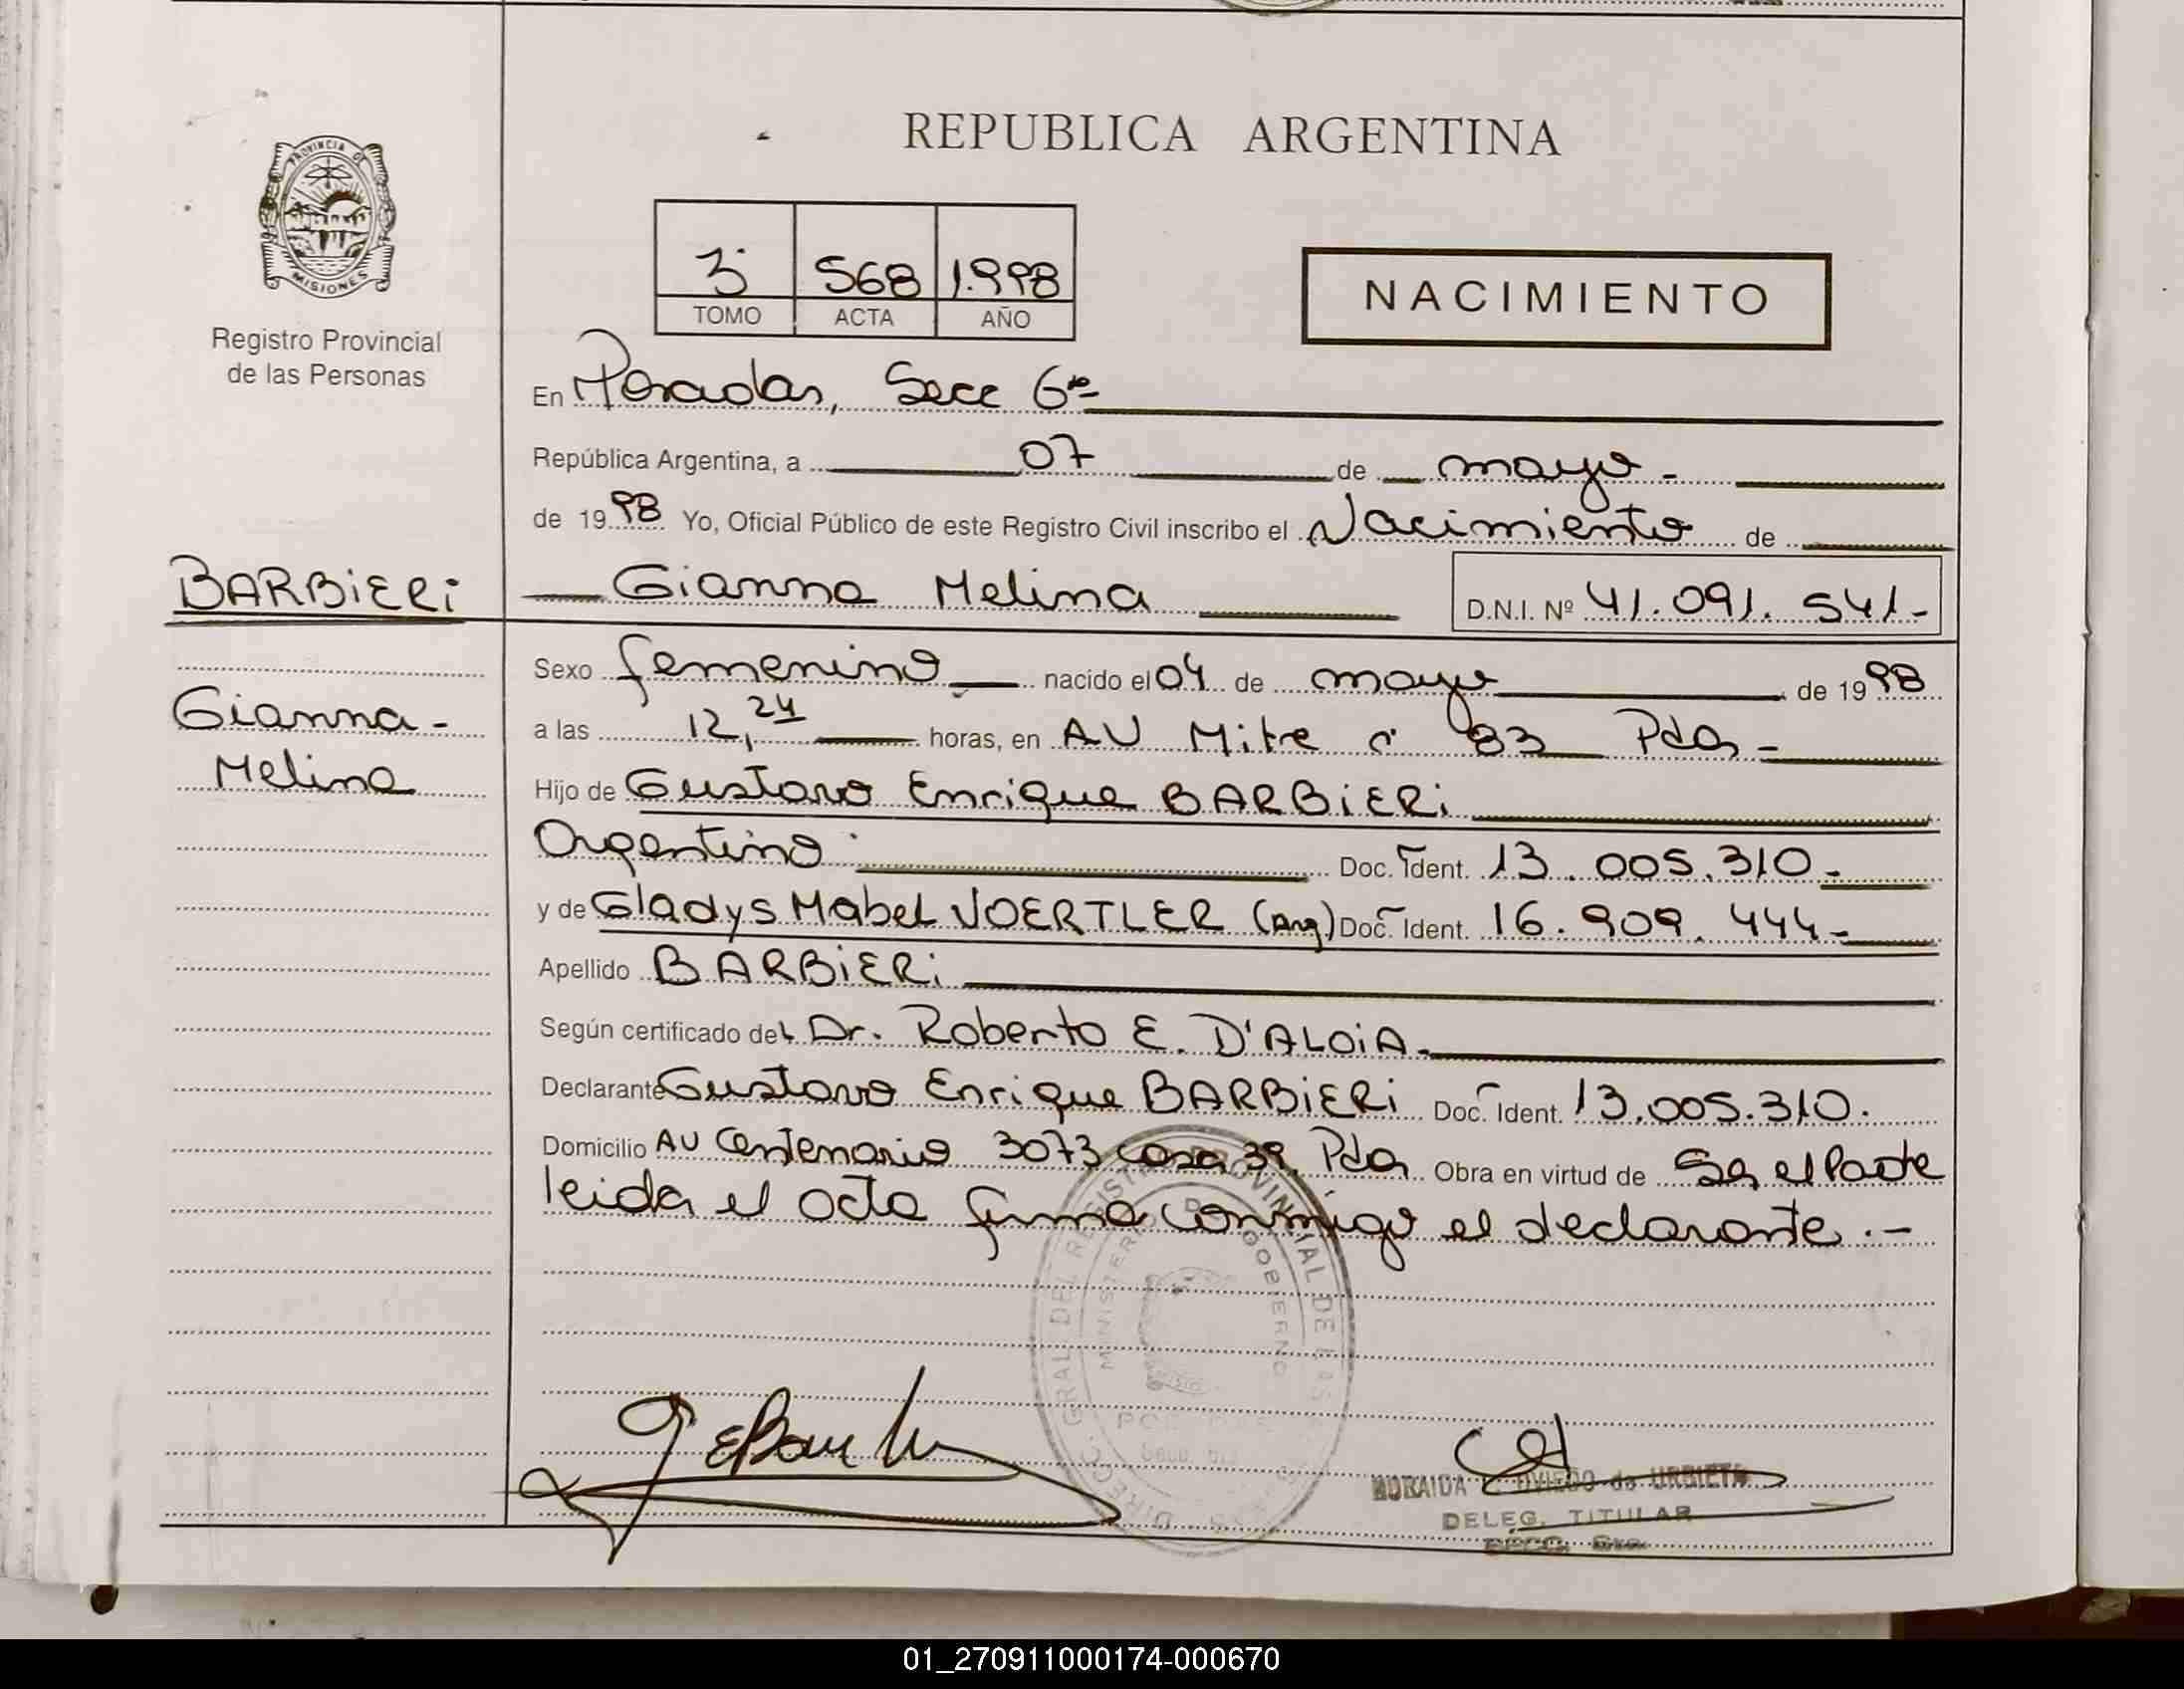 REPUBLICA ARGENTINA
PROVINCIA DE
MISIONES
Registro Provincial
de las Personas
3º 568 1.998
TOMO ACTA AÑO
NACIMIENTO
En Posadas, Secc 6ta
República Argentina, a 07 de mayo -
de 1998 Yo, Oficial Público de este Registro Civil inscribo el Nacimiento de
BARBiERi
Gianna Melina D.N.I. Nº 41.091.541-
Gianna -
Melina
Sexo femenino nacido el 04 de mayo de 1998
a las 12,24 horas, en AV Mitre 83 Pdas -
Hijo de Gustavo Enrique BARBiERi
Argentino Doc. Ident. 13.005.310-
y de Gladys Mabel VOERTLER (Arg) Doc. Ident. 16.909.444-
Apellido BARBiERi
Según certificado del Dr. Roberto E. D'ALOiA.
Declarante Gustavo Enrique BARBiERi Doc. Ident. 13.005.310.
Domicilio AV Centenario 3073 casa 39, Pdas Obra en virtud de Ser el Padre
leida el acta firma conmigo el declarante.-
DIREC. GRAL DEL REGISTRO PROVINCIAL DE LAS
MINISTERIO DE GOBIERNO
OVIEDO de URBIETA
DELEG. TITULAR
01_270911000174-000670